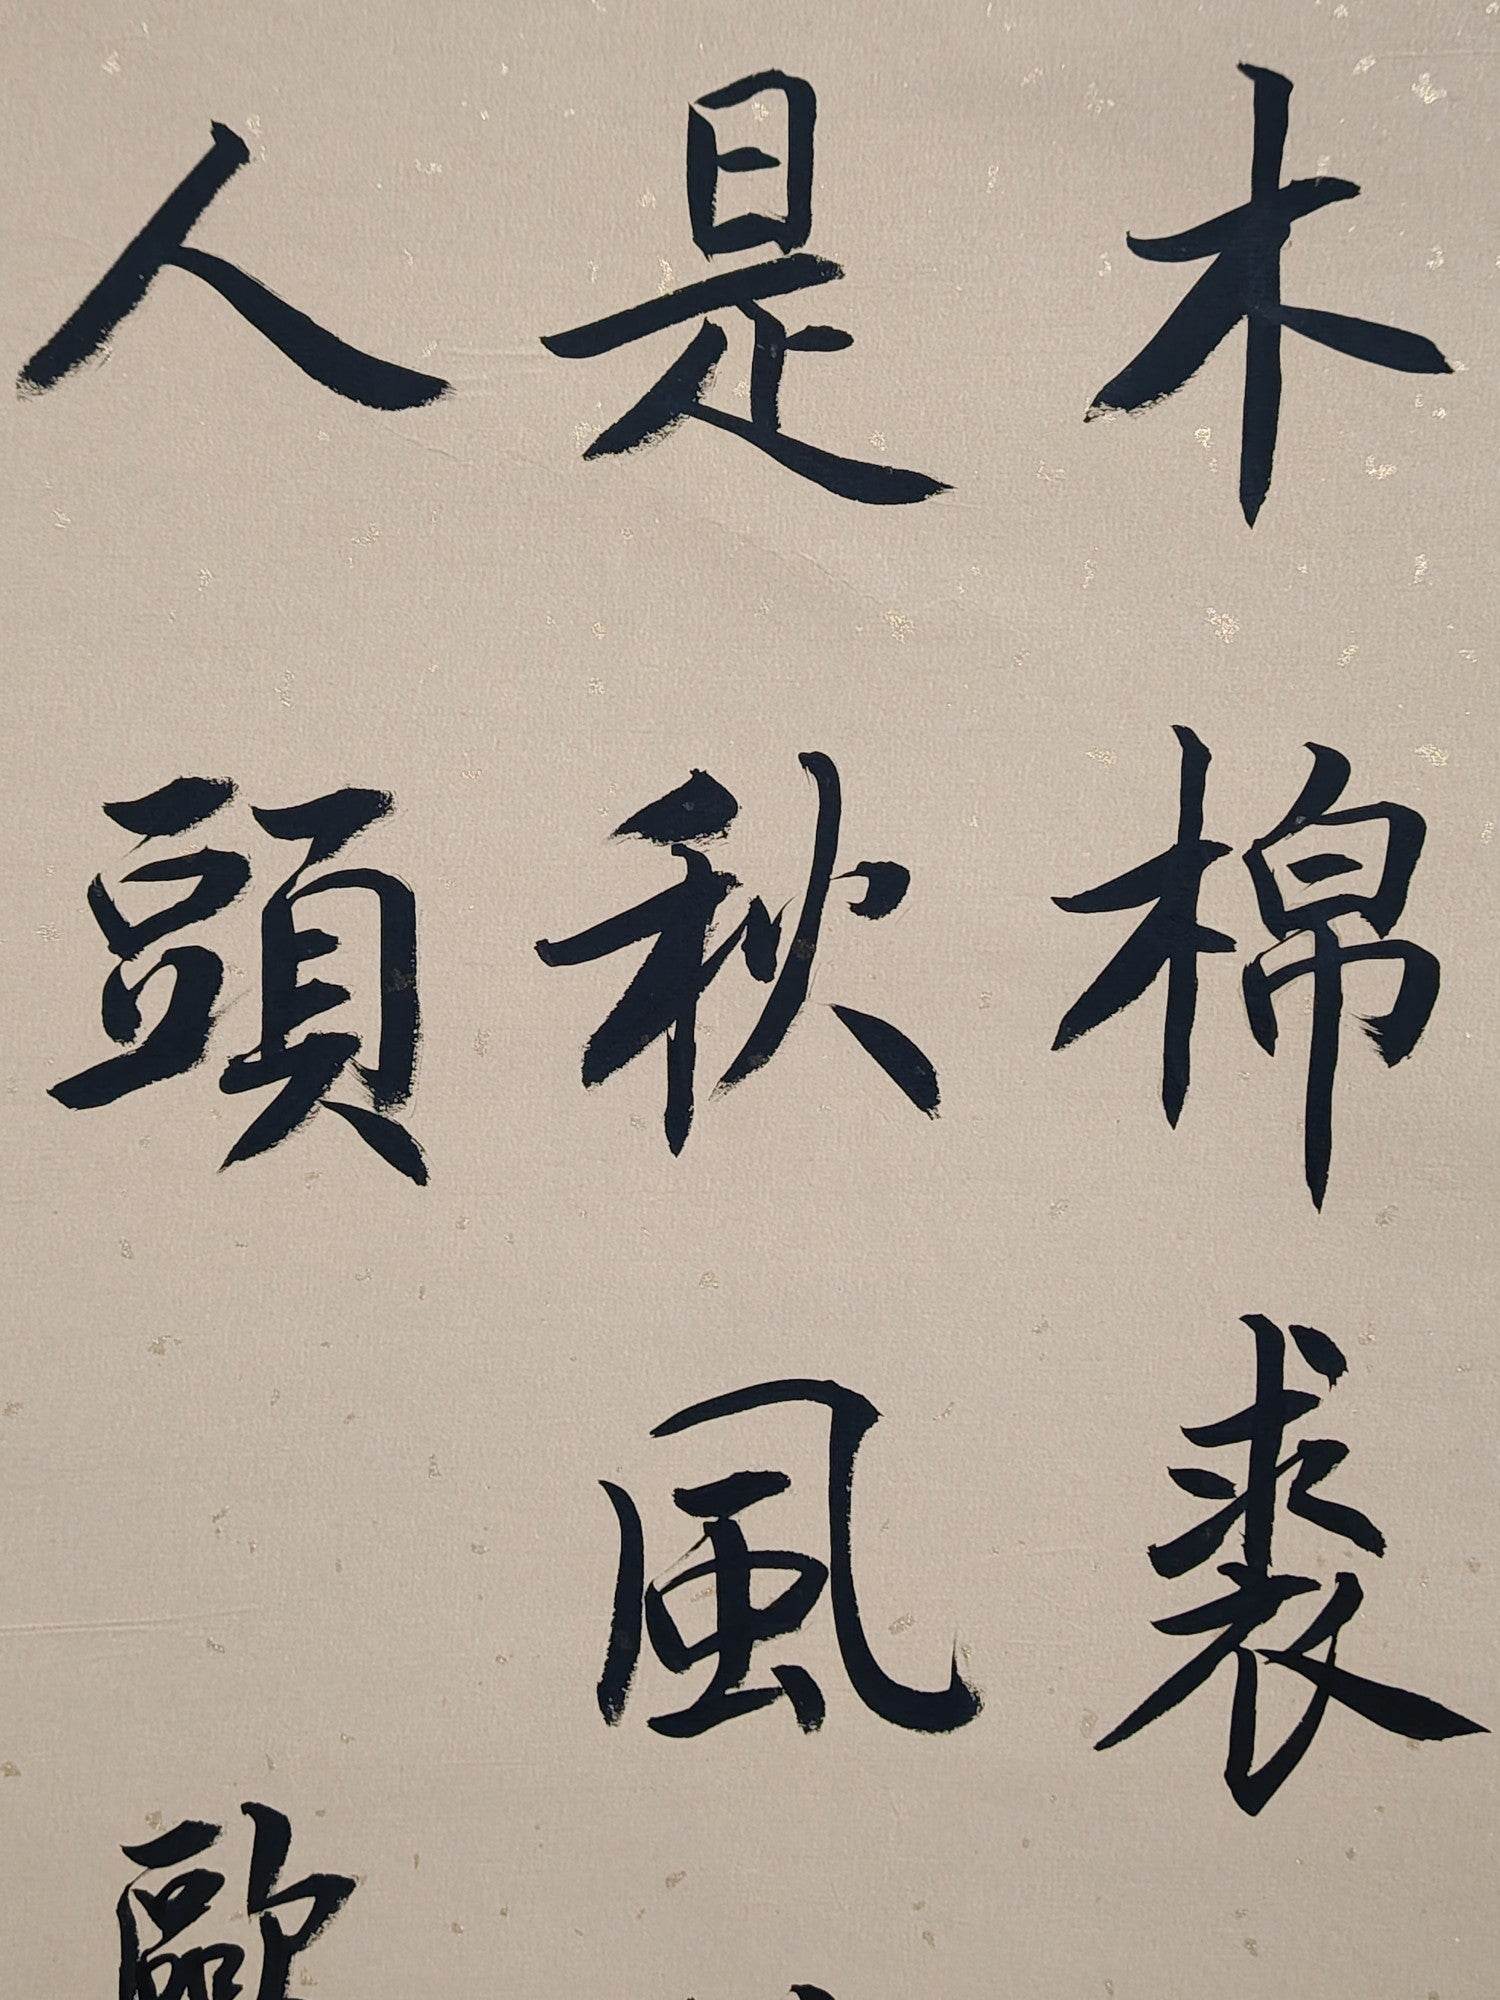 木棉裘
是秋風
人頭 歐